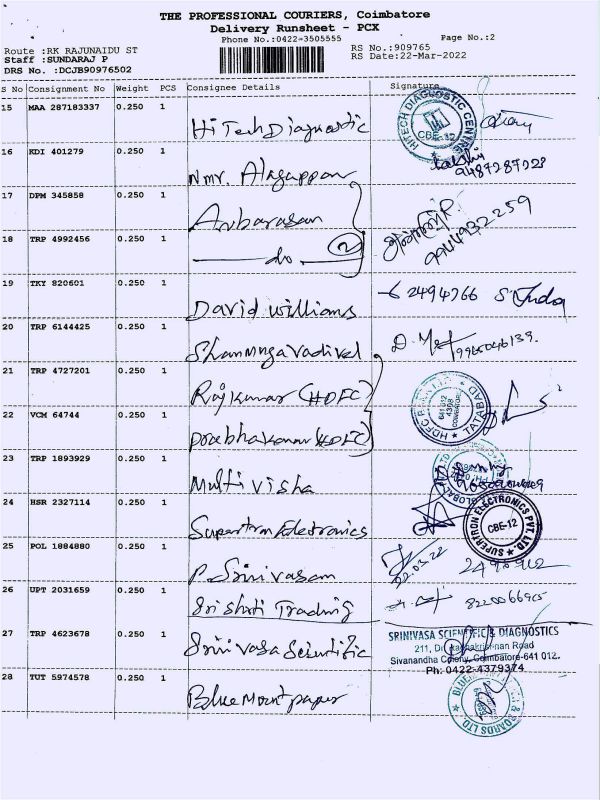 THE PROFESSIONAL COURIERS, Coimbatore
Delivery Runsheet - PCX
Phone No.:0422-3505555
Page No.:2
Route :RK RAJUNAIDU ST
RS No.:909765
Staff :SUNDARAJ P
RS Date:22-Mar-2022
DRS No. :DCJB90976502
S No Consignment No Weight PCS Consignee Details Signature
15 MAA 287183337 0.250 1 HiTech Diagnostic
HITECH DIAGNOSTIC CENTRE CBE-12
9487287028
16 KDI 401279 0.250 1 Nmr. Alagappan
17 DPM 345858 0.250 1 Anbarasan
9944932259
18 TRP 4992456 0.250 1 do 2
19 TKY 820601 0.250 1 David williams 2494766
20 TRP 6144425 0.250 1 Shanmugavadivel
21 TRP 4727201 0.250 1 Rajkumar (HDFC)
TATABAD
22 VCM 64744 0.250 1 Prabhakaran (HDFC)
23 TRP 1893929 0.250 1 Multi visha
24 HSR 2327114 0.250 1 Supertron Electronics
SUPERTRON ELECTRONICS PVT. LTD. CBE-12
25 POL 1884880 0.250 1 P. Srinivasan 22.03.22
26 UPT 2031659 0.250 1 Sri shrti Trading 8220066905
27 TRP 4623678 0.250 1 Srinivasa Scientific
SRINIVASA SCIENTIFIC & DIAGNOSTICS
211, Dr. Radhakrishnan Road
Sivanandha Colony, Coimbatore-641 012.
Ph: 0422-4379374
28 TUT 5974578 0.250 1 Blue Mount paper
BOARDS LTD.